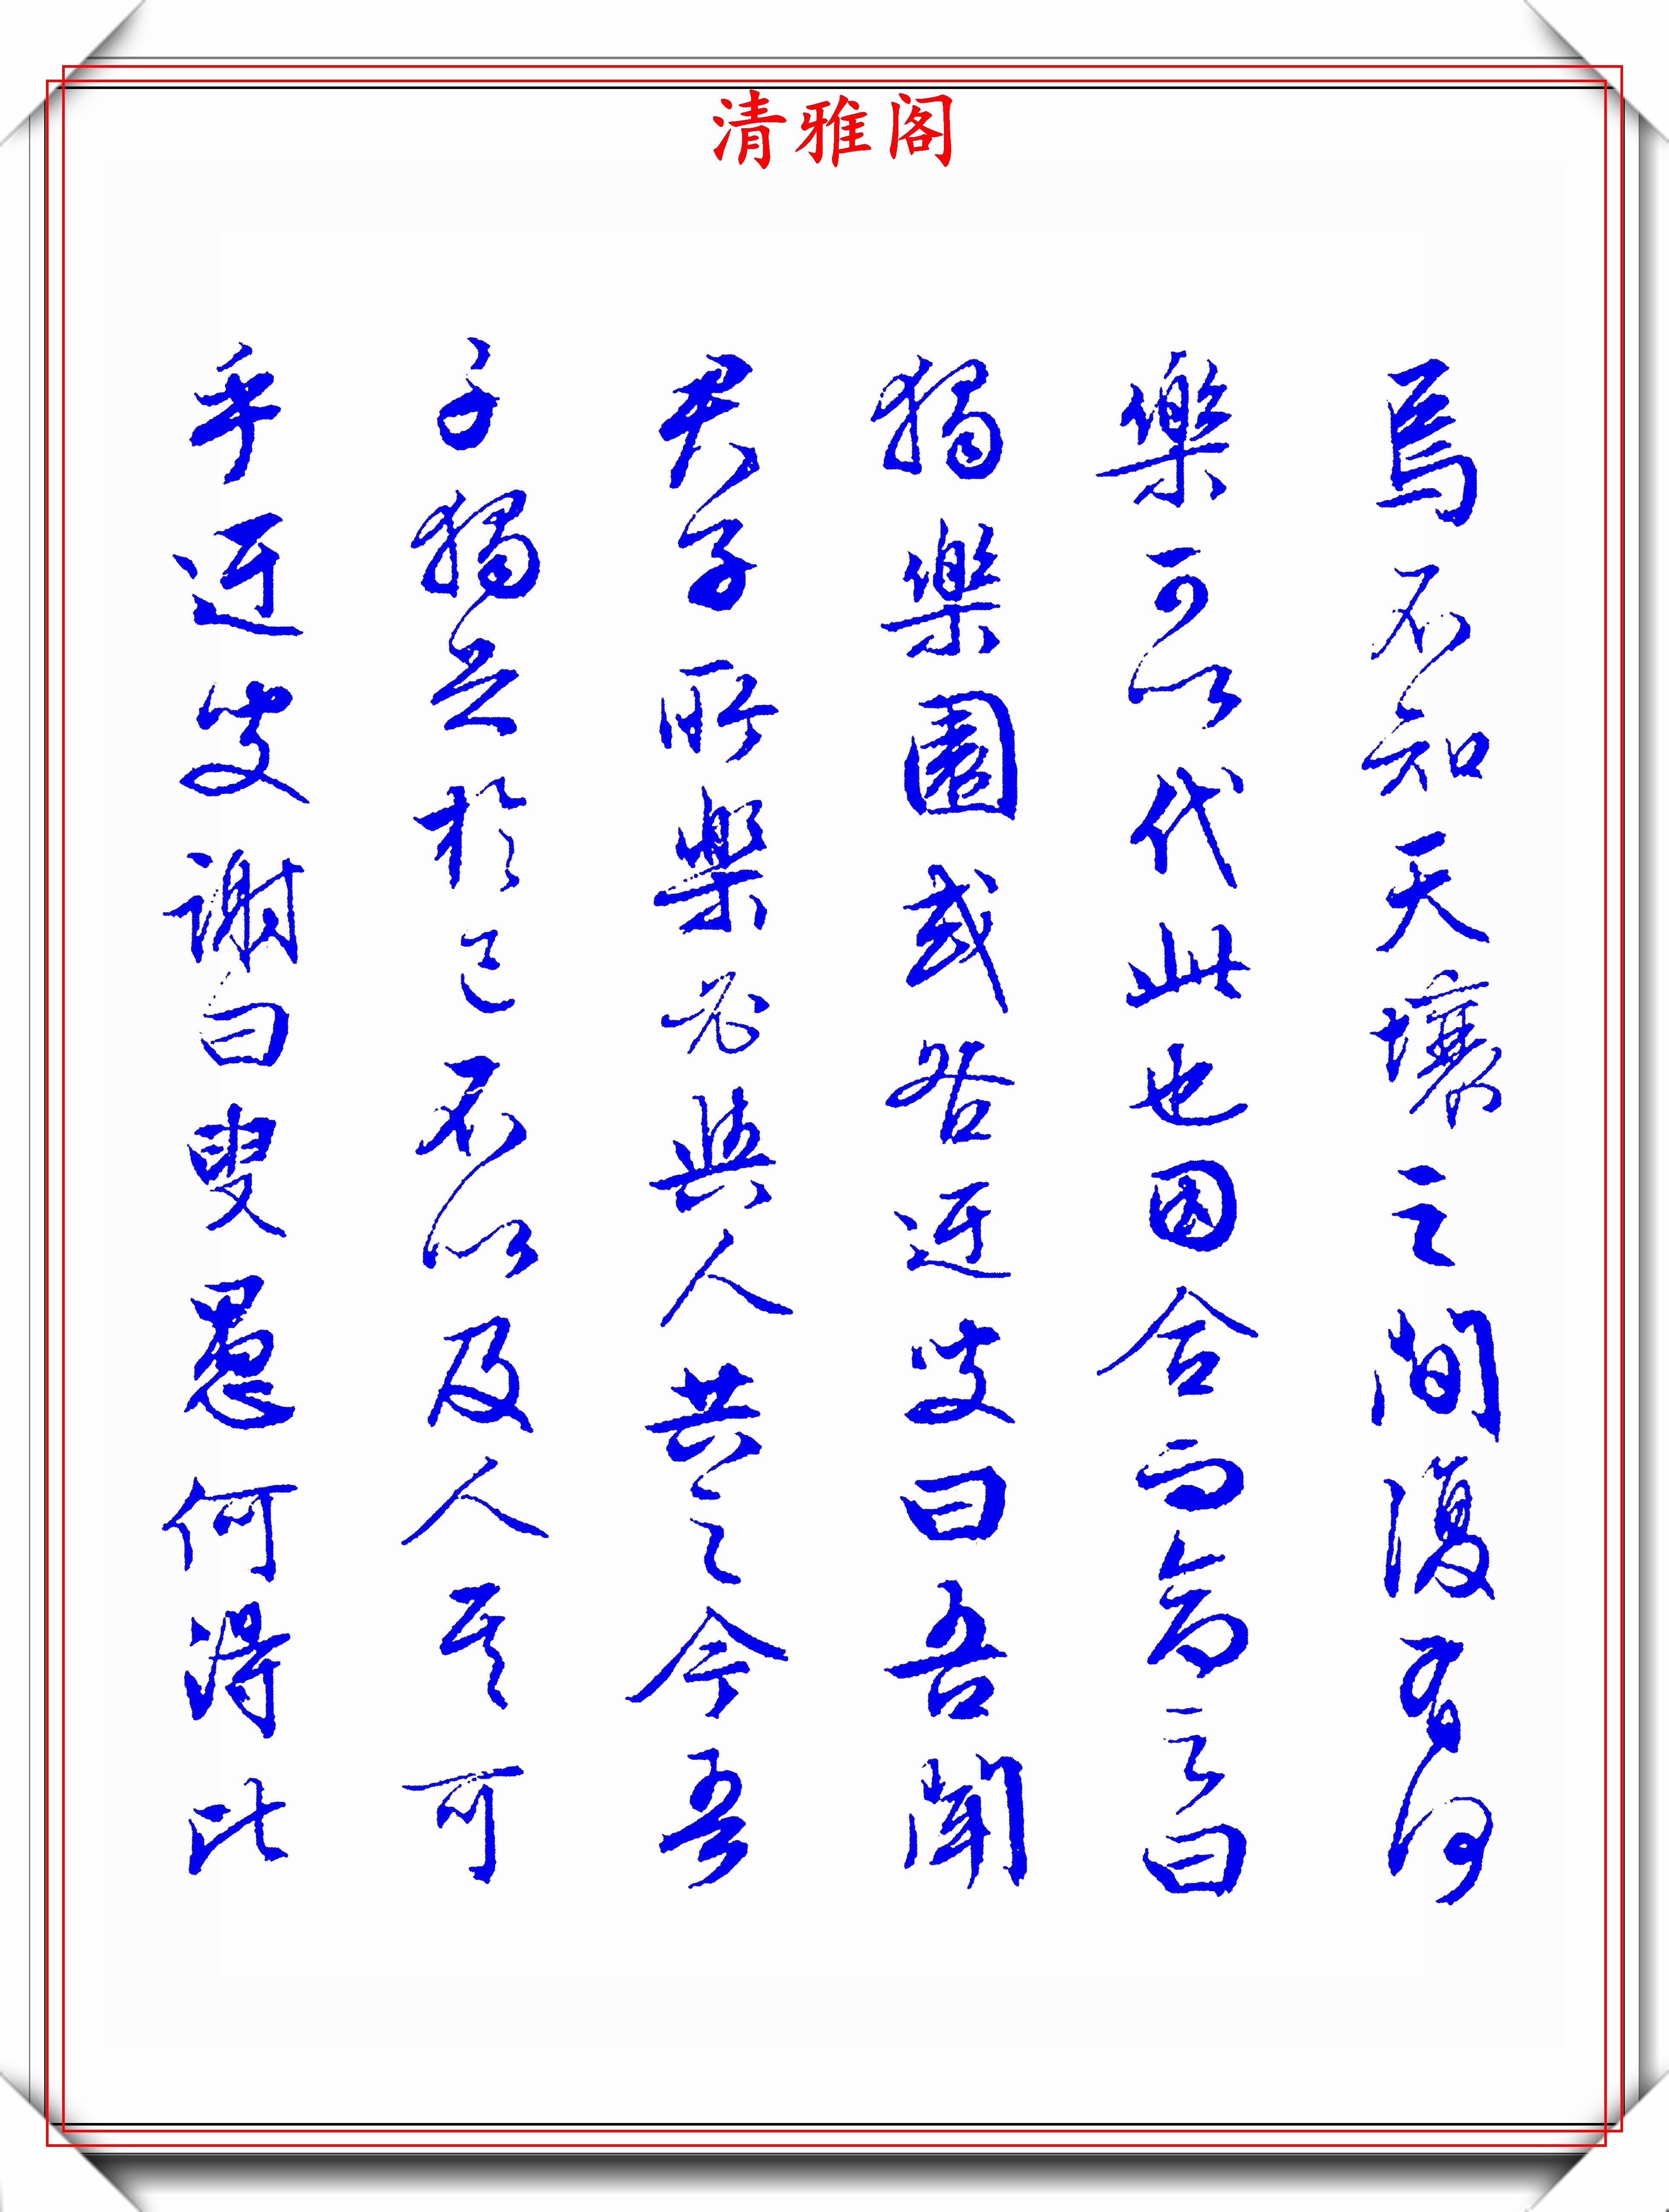 清雅阁
焉不知天壤之間復有何
樂可以代此也因合而命之曰
獨樂園或咎迂叟曰吾聞
君子所樂必與人共之今吾
子獨足於己不以及人其可
乎迂叟謝曰叟愚何得比